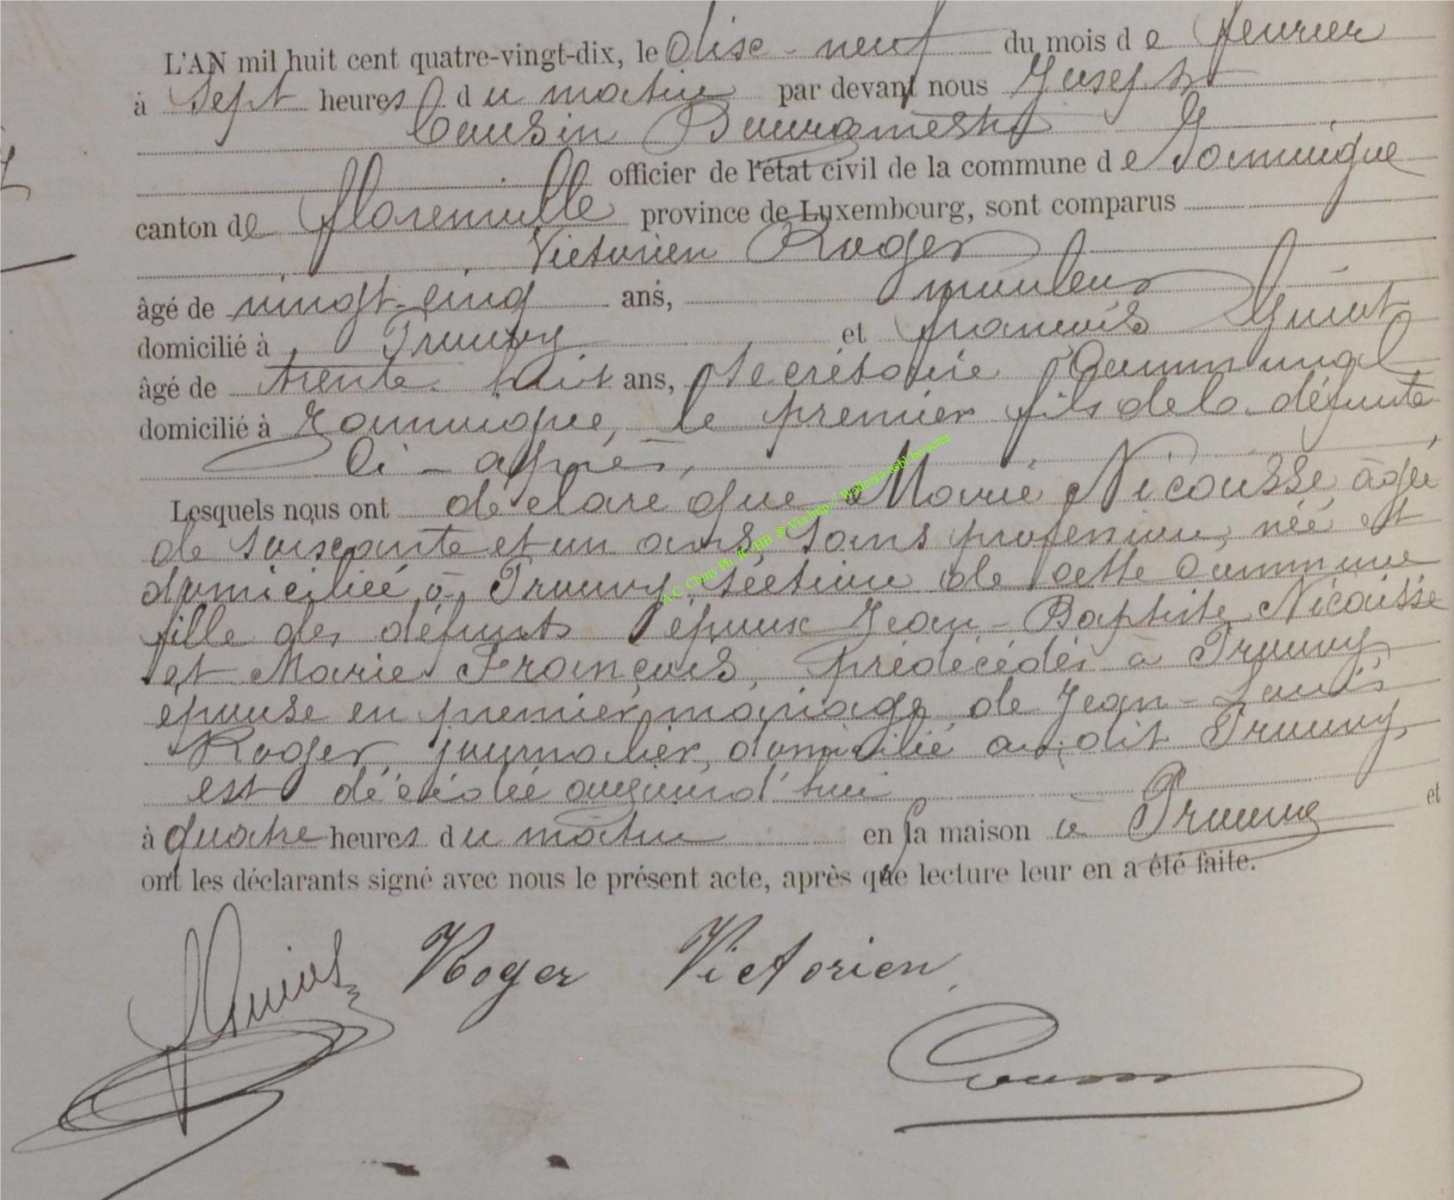 L'AN mil huit cent quatre-vingt-dix, le dise-neuf du mois de février
à sept heures du matin par devant nous Joseph
Cousin Bourgmestre
officier de l'état civil de la commune de Jamoigne
canton de florenville province de Luxembourg, sont comparus
Victorien Roger
âgé de vingt-cinq ans, mouleur
domicilié à Prouvy et françois Guiot
âgé de trente huit ans, secrétaire communal
domicilié à Jamoigne, le premier fils de la défunte
Ci-après,
Lesquels nous ont déclaré que Marie Nicousse âgée
de soixante et un ans, sans profession, née et
domiciliée à Prouvy, séction de cette commune
fille des défunts époux Jean-Baptiste Nicousse
et Marie François, prédécédés à Prouvy,
épouse en premier mariage de Jean-Louis
Roger, journalier, domicilié audit Prouvy,
est décédée aujourd'hui
à quatre heures du matin en la maison à Prouvy et
ont les déclarants signé avec nous le présent acte, après que lecture leur en a été faite.
Guiot Roger Victorien
Cousin